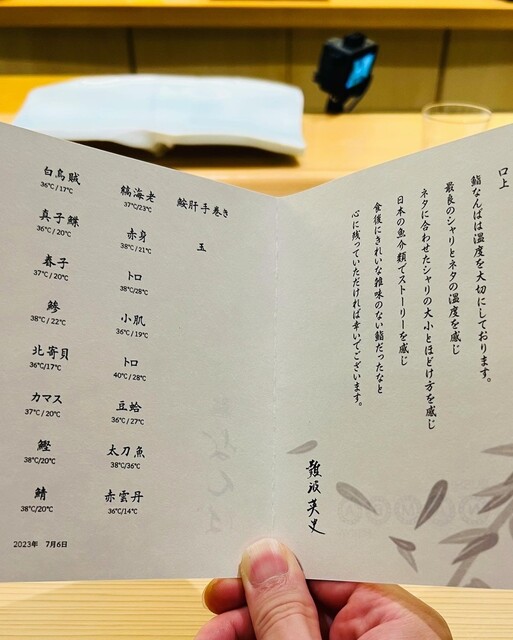 白烏賊
36℃/17℃
真子鰈
36℃/20℃
春子
37℃/20℃
鯵
38℃/22℃
北寄貝
36℃/17℃
カマス
37℃/20℃
鰹
38℃/20℃
鯖
38℃/20℃
縞海老
37℃/23℃
赤身
38℃/21℃
トロ
38℃/28℃
小肌
36℃/19℃
トロ
40℃/28℃
豆蛤
36℃/27℃
太刀魚
38℃/36℃
赤雲丹
36℃/14℃
鮟肝手巻き
玉
2023年 7月6日
口上
鮨なんばは温度を大切にしております。
最良のシャリとネタの温度を感じ
ネタに合わせたシャリの大小とほどけ方を感じ
日本の魚介類でストーリーを感じ
食後にきれいな雑味のない鮨だったなと
心に残っていただければ幸いでございます。
難波英史